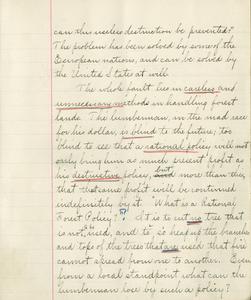 can this useless destruction be prevented?"
The problem has been solved by some of the
European nations, and can be solved by
the United States at will.
The whole fault lies in careless and
unnecessary methods in handling forest
lands. The lumberman, in the mad race
for his dollar, is blind to the future; too
blind to see that a rational policy will not
only bring him as much present profit as
his destructive policy, but more than
that the same profit will be continued
indefinitely by it. "What is a Rational
Forest Policy?" It is to cut no tree that
is not used, and to so heap up the branches
and tops of the trees that are used that fire
cannot spread from one to another. Even
from a local standpoint what can the
lumberman lose by such a policy?